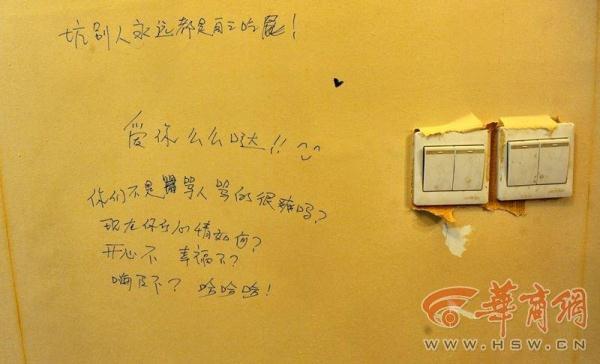 坑别人永远都是自己吃屁!
爱你么么哒!!
你们不是骂人骂的很爽吗?
现在你的心情如何?
开心不 幸福不?
嗨皮不? 哈哈哈!
華商網
WWW.HSW.CN